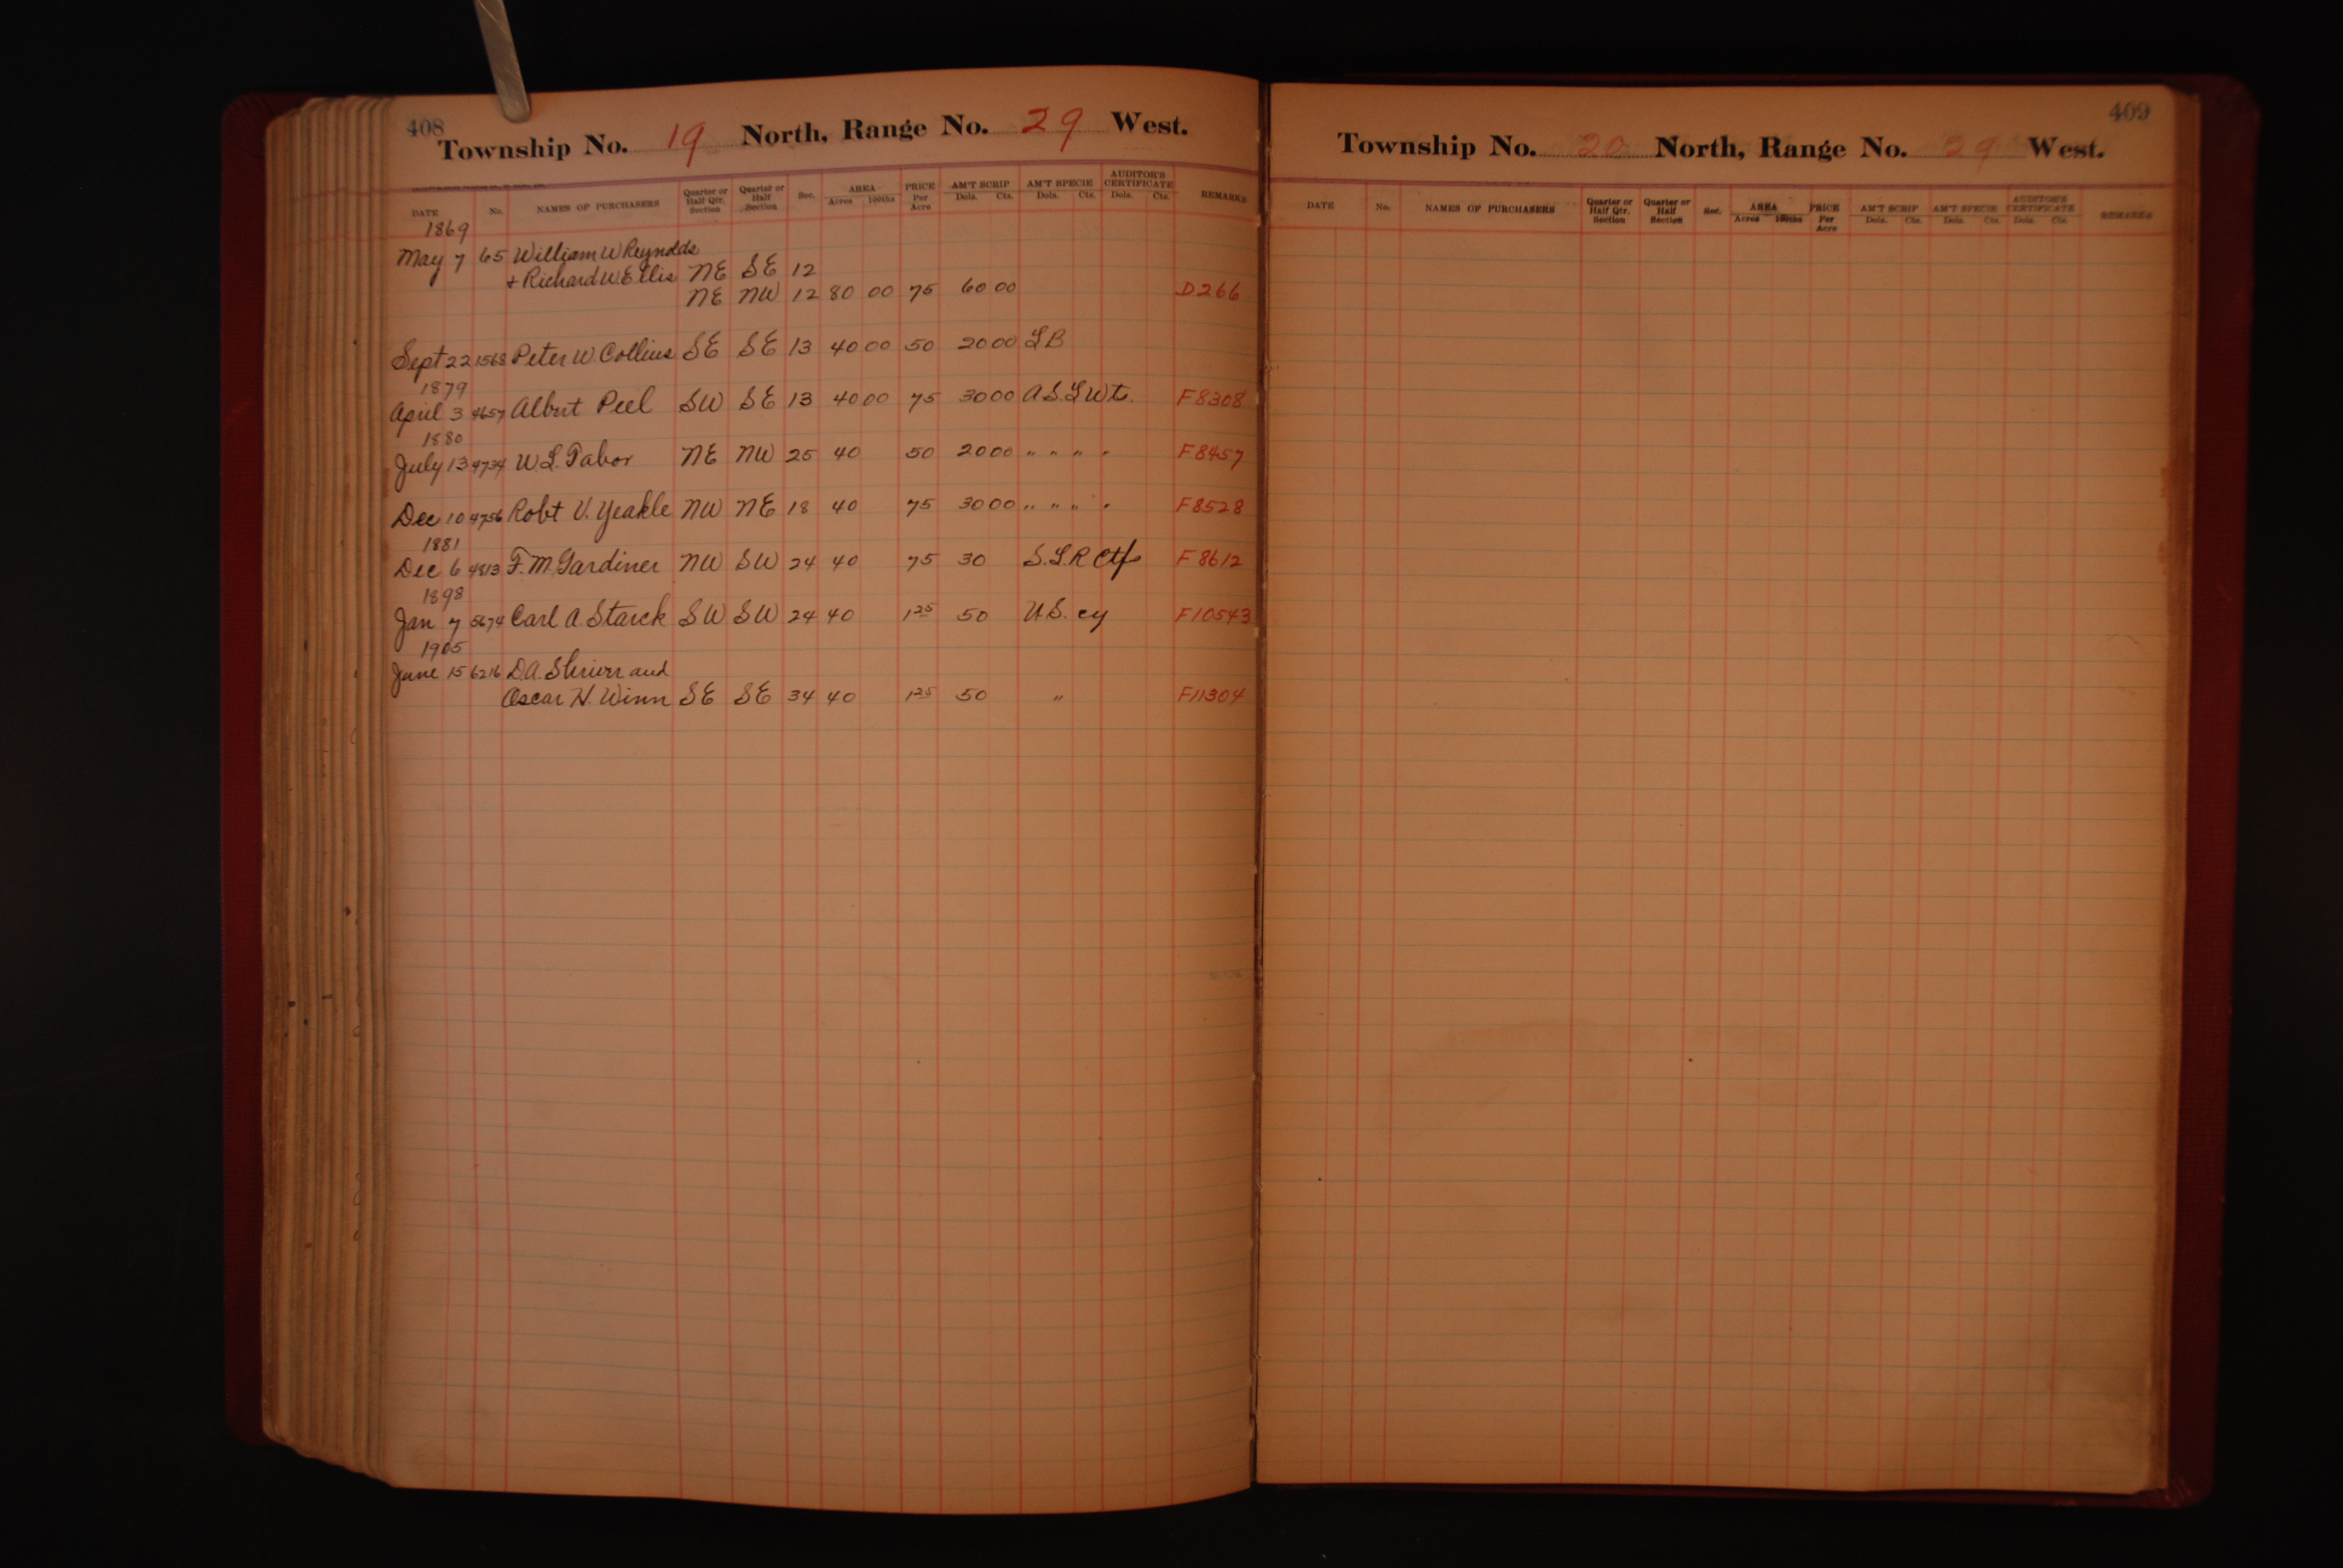 408
Township No. 19 North, Range No. 29 West.
DATE No. NAMES OF PURCHASERS Quarter or Half Qtr. Section Quarter or Half Section Sec. AREA Acres 100ths PRICE Per Acre AM'T SCRIP Dols. Cts. AM'T SPECIE Dols. Cts. AUDITOR'S CERTIFICATE Dols. Cts. REMARKS
1869
May 7 65 William W Reynolds
+ Richard W. Ellis NE SE 12
NE NW 12 80 00 75 60 00 D266
Sept 22 1568 Peter W Collins SE SE 13 40 00 50 20 00 LB
1879
April 3 4657 Albert Peel SW SE 13 40 00 75 30 00 A S. L Wt. F8308
1880
July 13 4734 W L. Tabor NE NW 25 40 50 20 00 " " " " F8457
Dec 10 4756 Robt V. Yeakle NW NE 18 40 75 30 00 " " " " F8528
1881
Dec 6 4813 F. M. Gardiner NW SW 24 40 75 30 S. L. R Ctf F8612
1898
Jan 7 5674 Carl A. Starck SW SW 24 40 1 25 50 U S. cy F10543
1905
June 15 6216 D.A. and
Oscar H. Winn SE SE 34 40 1 25 50 " F11304
409
Township No. 20 North, Range No. 29 West.
DATE No. NAMES OF PURCHASERS Quarter or Half Qtr. Section Quarter or Half Section Sec. AREA Acres 100ths PRICE Per Acre AM'T SCRIP Dols. Cts. AM'T SPECIE Dols. Cts. AUDITOR'S CERTIFICATE Dols. Cts. REMARKS